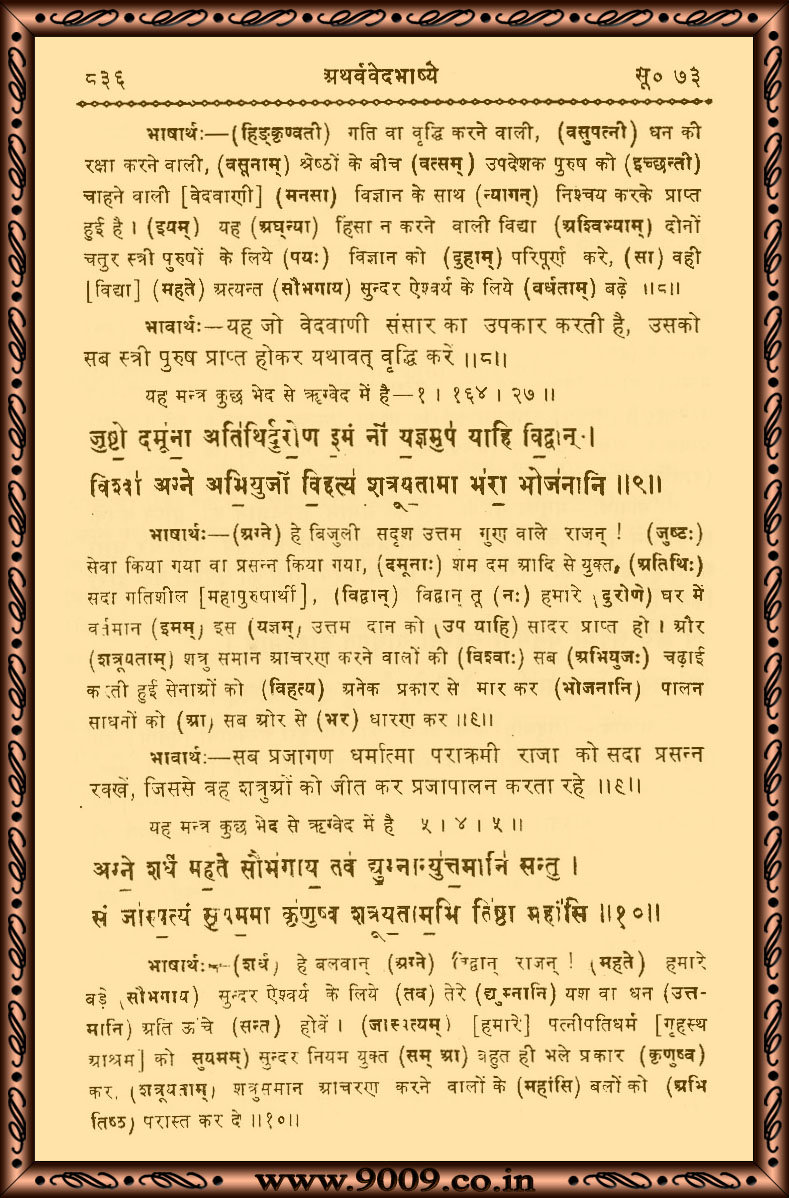 ८३६ अथर्ववेदभाष्ये सू० ७३
भाषार्थः—(हिङ्कृण्वती) गति वा वृद्धि करने वाली, (वसुपत्नी) धन की
रक्षा करने वाली, (वसूनाम्) श्रेष्ठों के बीच (वत्सम्) उपदेशक पुरुष को (इच्छन्ती)
चाहने वाली [वेदवाणी] (मनसा) विज्ञान के साथ (न्यागन्) निश्चय करके प्राप्त
हुई है। (इयम्) यह (अघ्न्या) हिंसा न करने वाली विद्या (अश्विभ्याम्) दोनों
चतुर स्त्री पुरुषों के लिये (पयः) विज्ञान को (दुहाम्) परिपूर्ण करे, (सा) वही
[विद्या] (महते) अत्यन्त (सौभगाय) सुन्दर ऐश्वर्य के लिये (वर्धताम्) बढ़े ॥८॥
भावार्थः—यह जो वेदवाणी संसार का उपकार करती है, उसको
सब स्त्री पुरुष प्राप्त होकर यथावत् वृद्धि करें ॥८॥
यह मन्त्र कुछ भेद से ऋग्वेद में है—१। १६४। २७॥
जुष्टो॒ दमू॑ना॒ अति॑थिर्दुरो॒ण इ॒मं नो॑ य॒ज्ञमुप॑ याहि वि॒द्वान्।
विश्वा॑ अग्ने अभि॒युजो॑ वि॒हत्य॑ शत्रूय॒तामा भ॑रा॒ भोज॑नानि ॥९॥
भाषार्थः—(अग्ने) हे बिजुली सदृश उत्तम गुण वाले राजन्! (जुष्टः)
सेवा किया गया वा प्रसन्न किया गया, (दमूनाः) शम दम आदि से युक्त, (अतिथिः)
सदा गतिशील [महापुरुषार्थी], (विद्वान्) विद्वान् तू (नः) हमारे (दुरोणे) घर में
वर्तमान (इमम्) इस (यज्ञम्) उत्तम दान को (उप याहि) सादर प्राप्त हो। और
(शत्रूयताम्) शत्रु समान आचरण करने वालों की (विश्वाः) सब (अभियुजः) चढ़ाई
करती हुई सेनाओं को (विहत्य) अनेक प्रकार से मार कर (भोजनानि) पालन
साधनों को (आ) सब ओर से (भर) धारण कर ॥९॥
भावार्थः—सब प्रजागण धर्मात्मा पराक्रमी राजा को सदा प्रसन्न
रक्खें, जिससे वह शत्रुओं को जीत कर प्रजापालन करता रहे ॥९॥
यह मन्त्र कुछ भेद से ऋग्वेद में है ५। ४। ५॥
अग्ने॒ शर्ध॑ मह॒ते सौभ॑गाय॒ तव॑ द्यु॒म्नान्यु॑त्त॒मानि॑ सन्तु।
सं जा॑स्प॒त्यं सु॒यम॒मा कृ॑णुष्व शत्रूय॒ताम॒भि ति॑ष्ठा॒ महां॑सि ॥१०॥
भाषार्थः—(शर्ध) हे बलवान् (अग्ने) विद्वान् राजन्! (महते) हमारे
बड़े (सौभगाय) सुन्दर ऐश्वर्य के लिये (तव) तेरे (द्युम्नानि) यश वा धन (उत्त-
मानि) अति ऊंचे (सन्तु) होवें। (जास्पत्यम्) [हमारे] पत्नीपतिधर्म [गृहस्थ
आश्रम] को (सुयमम्) सुन्दर नियम युक्त (सम् आ) बहुत ही भले प्रकार (कृणुष्व)
कर, (शत्रूयताम्) शत्रुसमान आचरण करने वालों के (महांसि) बलों को (अभि
तिष्ठ) परास्त कर दे ॥१०॥
www.9009.co.in